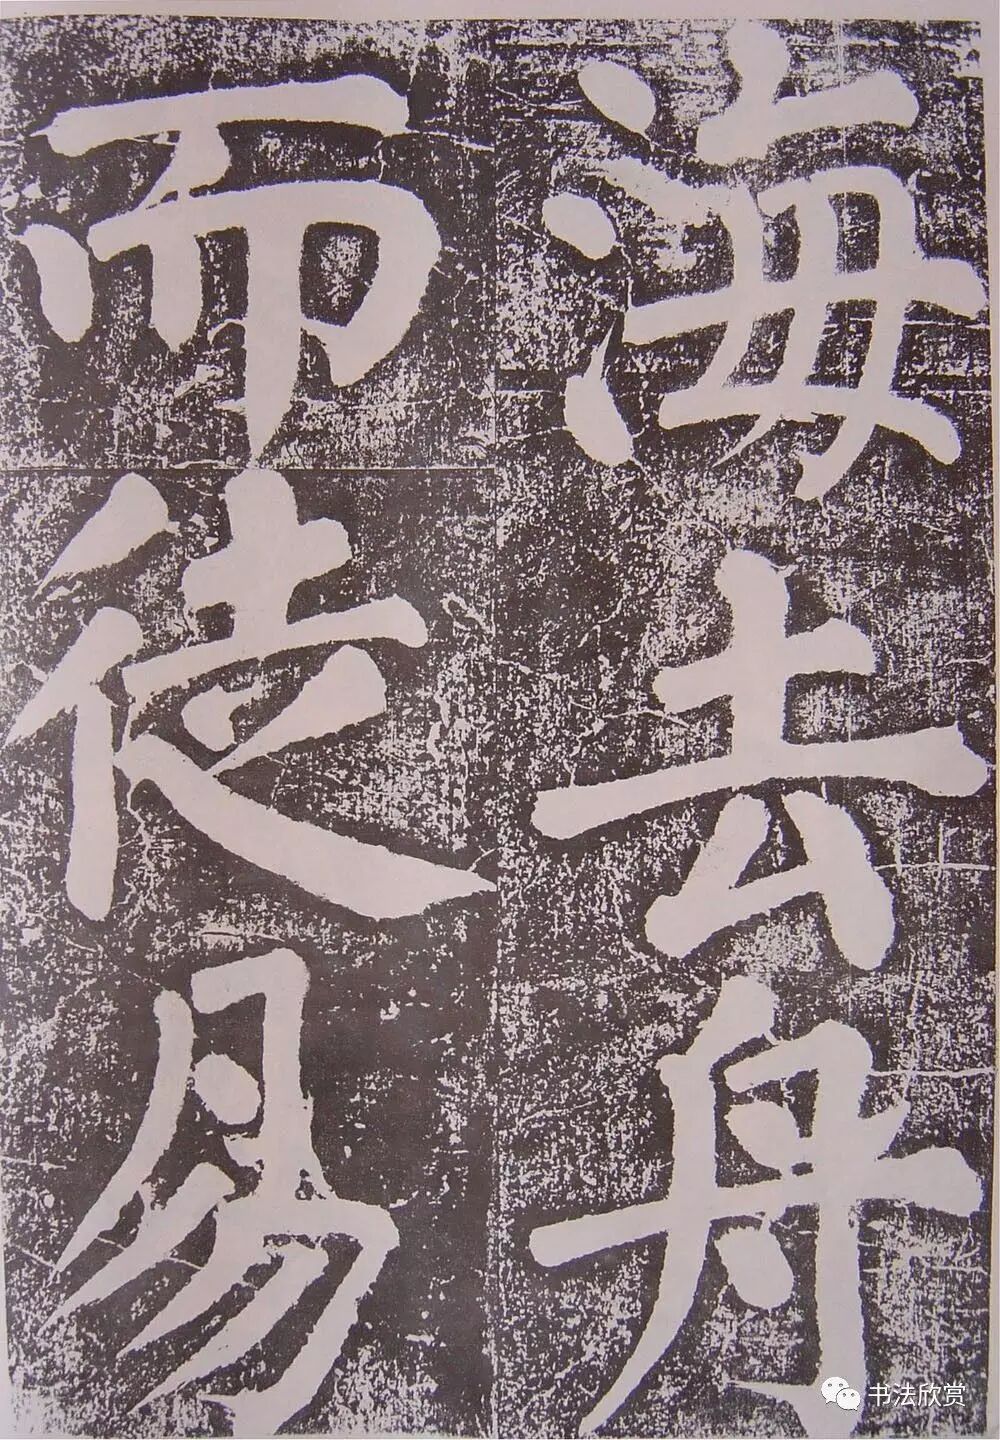 海去舟
而徒易
书法欣赏